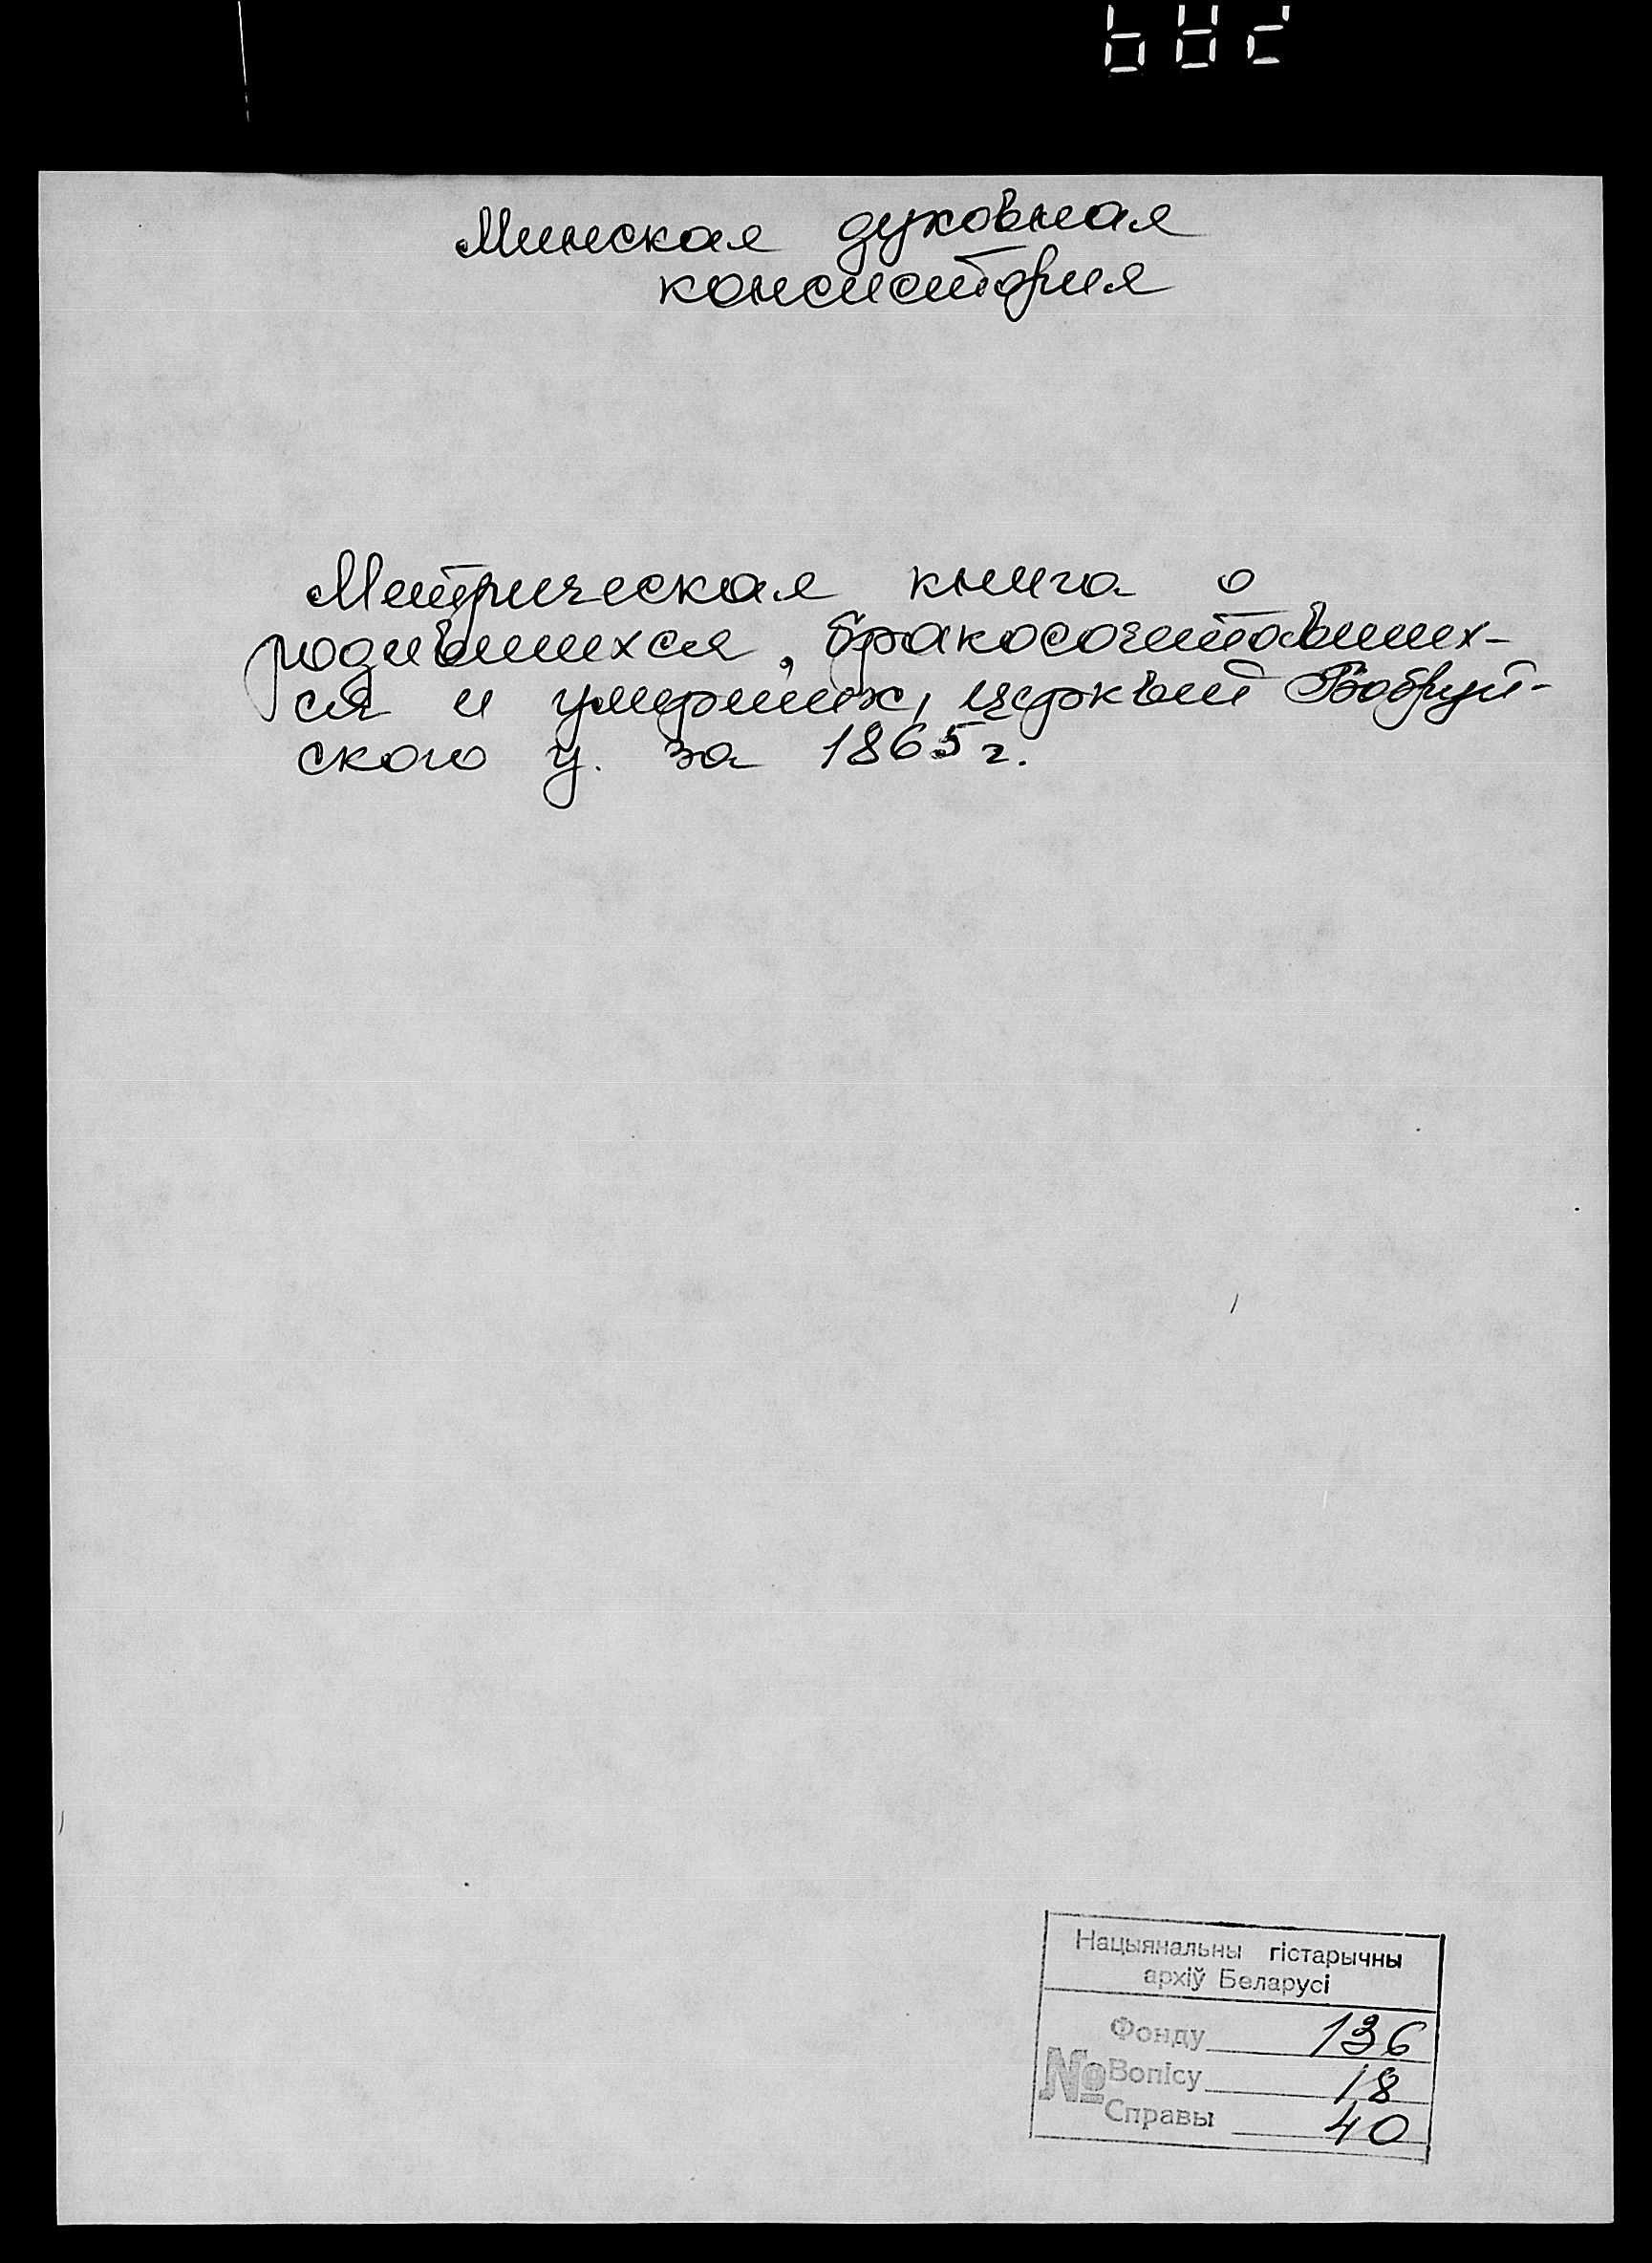 Минская духовная
консистория
Метрическая книга о
родившихся, бракосочетавших-
ся и умерших, церквей Бобруй-
ского у. за 1865 г.
Нацыянальны гістарычны
архіў Беларусі
Фонду 136
№ Вопісу 18
Справы 40